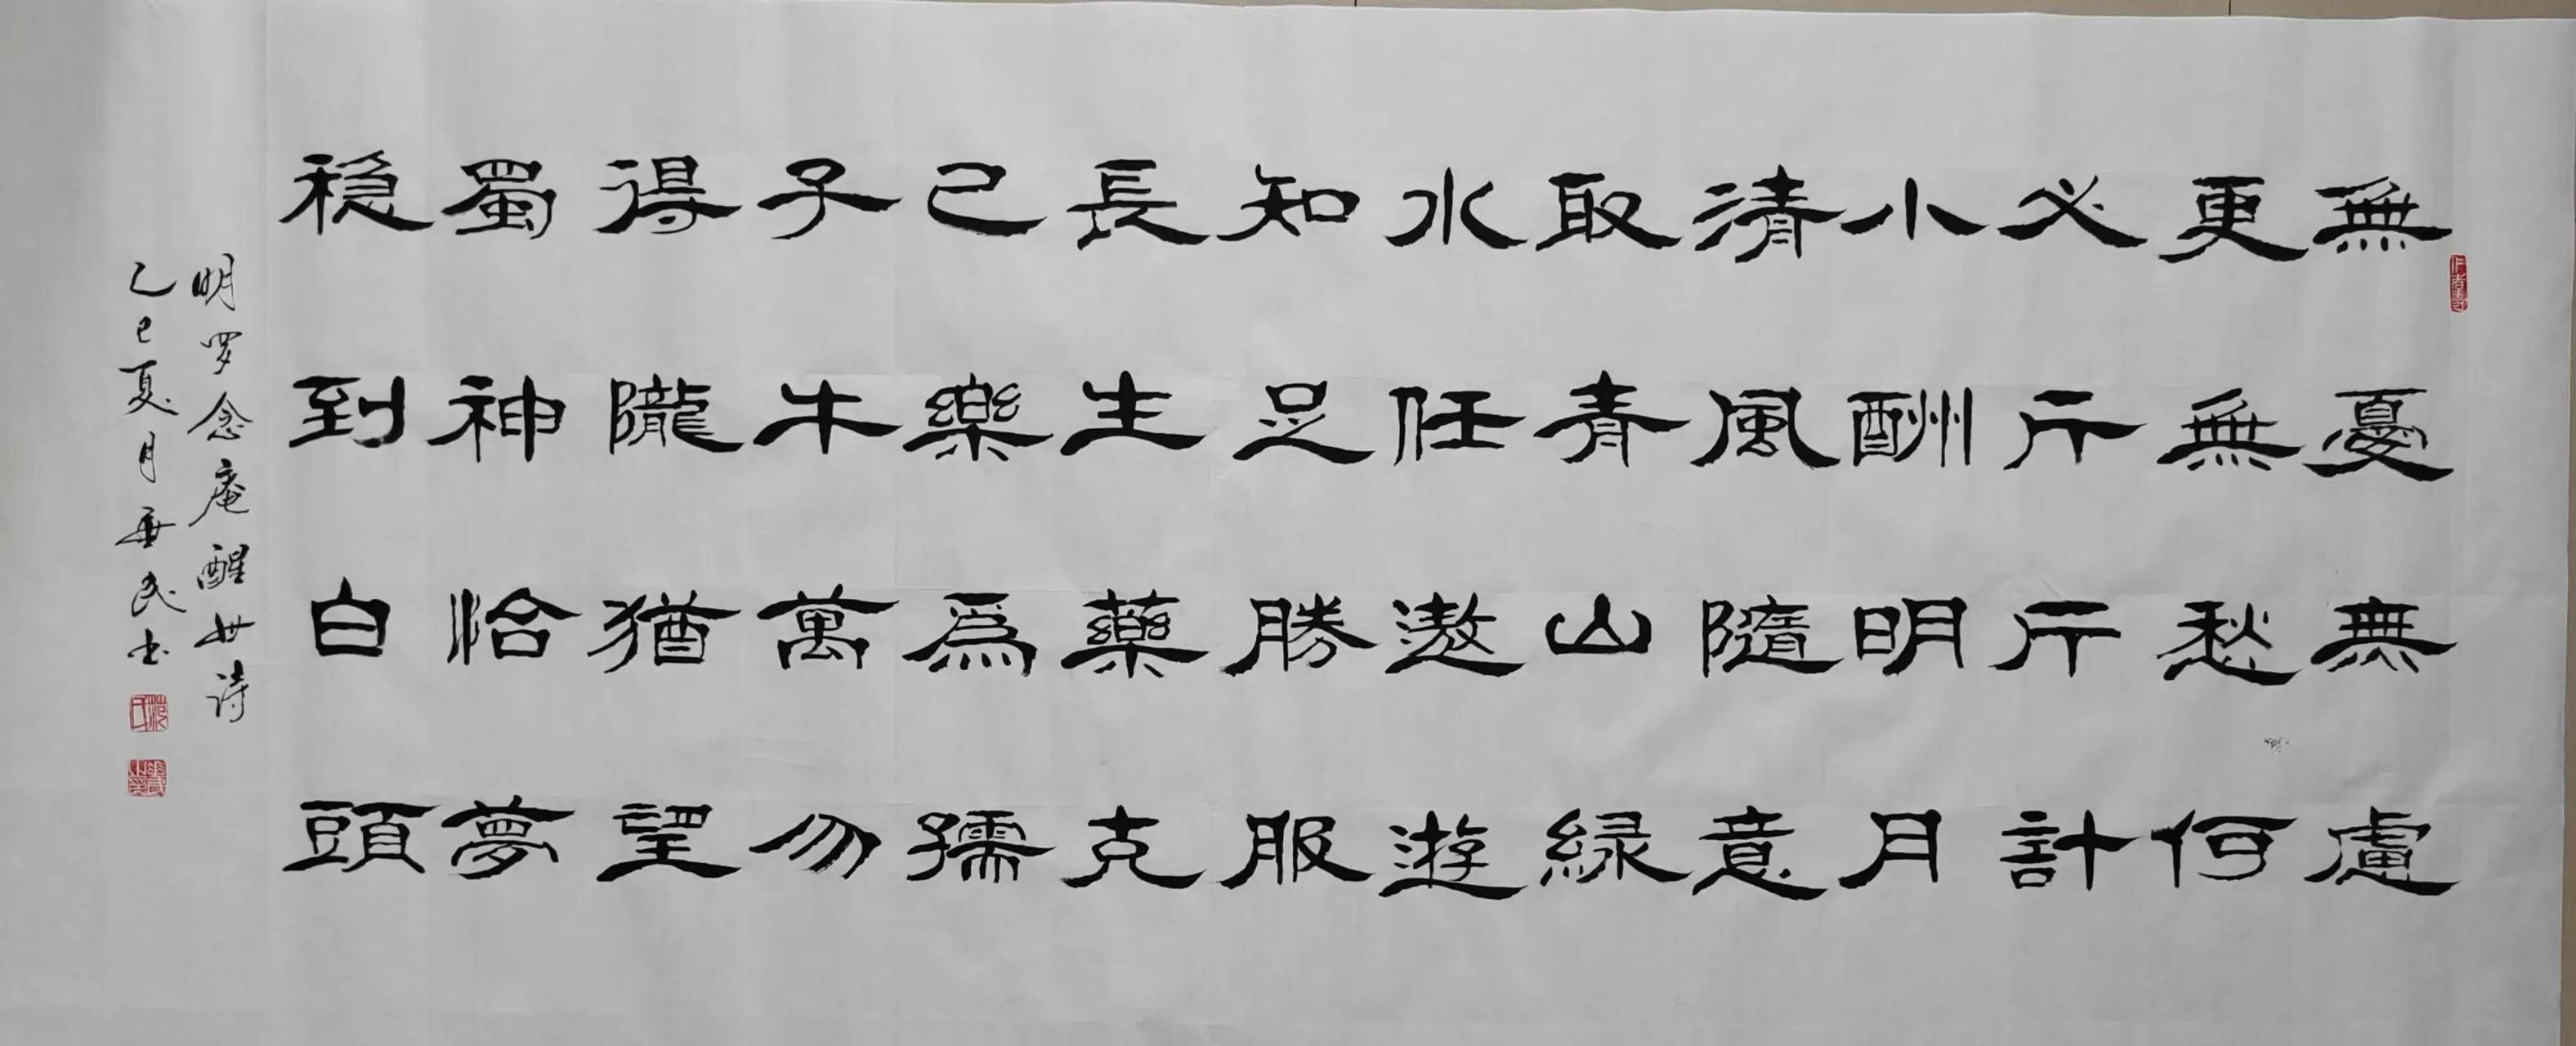 無憂無慮
更無愁何
必斤斤計
小酬明月
清風隨意
取青山綠
水任遨遊
知足勝服
長生藥克
己樂為孺
子牛萬勿
得隴猶望
蜀神恰夢
穏到白頭
明罗念庵醒世诗
乙巳夏月華民书